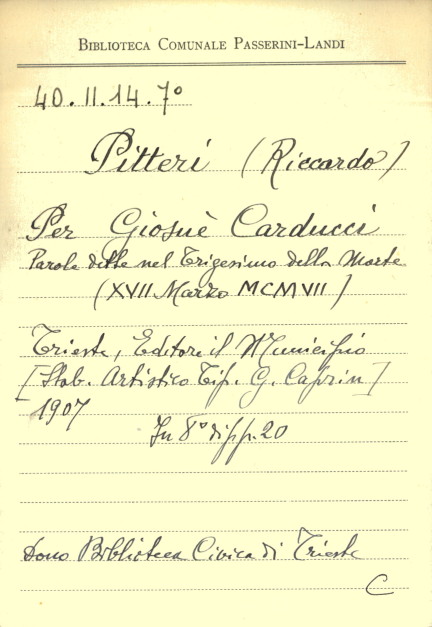 BIBLIOTECA COMUNALE PASSERINI-LANDI
40.II.14.7°
Pitteri (Riccardo)
Per Giosuè Carducci
Parole dette nel Trigesimo della Morte
(XVII Marzo MCMVII)
Trieste, Editore il Municipio
[Stab. Artistico Tip. G. Caprin]
1907
In 8° di pp. 20
Dono Biblioteca Civica di Trieste
C